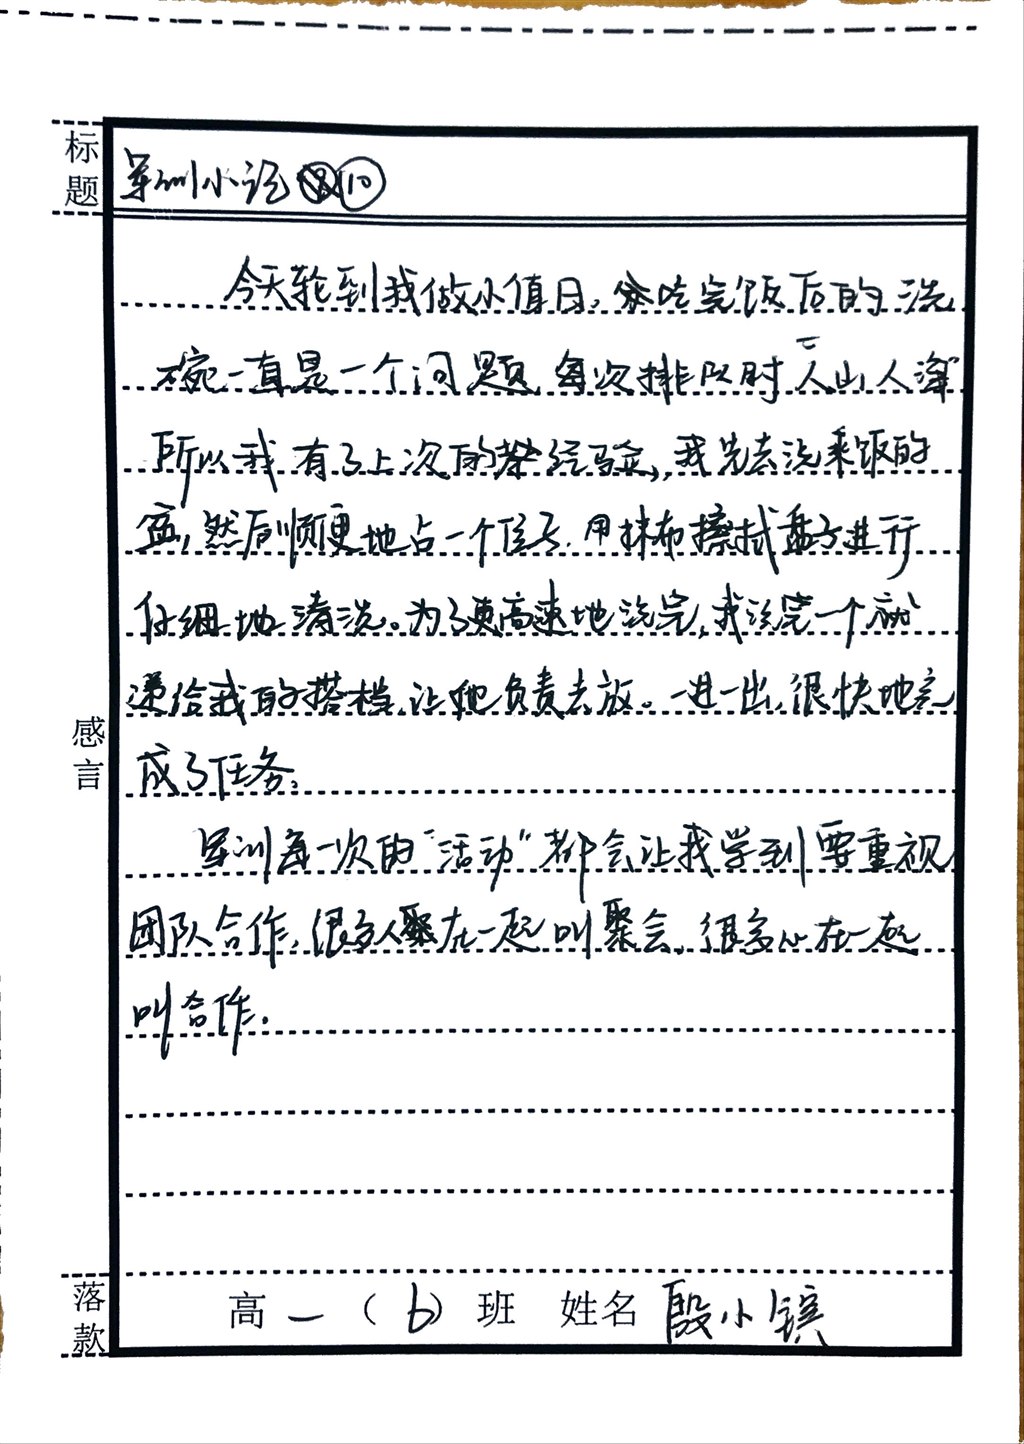 标题
军训小记⑩
今天轮到我做小值日，吃完饭后的洗
碗一直是一个问题，每次排队时人山人海
所以我有了上次的经验，我先去洗乘饭的
盆，然后顺便地占一个位子，用抹布擦拭盘子进行
仔细地清洗。为了更高速地洗完，我洗完一个就
递给我的搭档，让她负责去放。一进一出，很快地完
成了任务。
军训每一次的“活动”都会让我学到要重视
团队合作，很多人聚在一起叫聚会，很多心在一起
叫合作.
感言
落款
高一（6）班 姓名 殷小